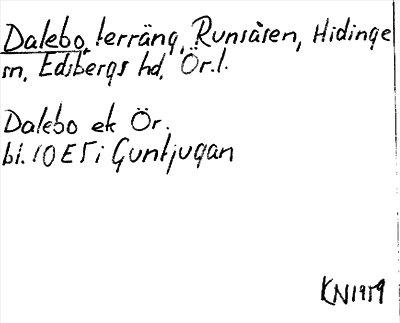 Dalebo, terräng, Runsåsen, Hidinge
sn, Edsbergs hd, Ör.l.
Dalebo ek Ör.
bl. 10E5i Guntjugan
KN1959